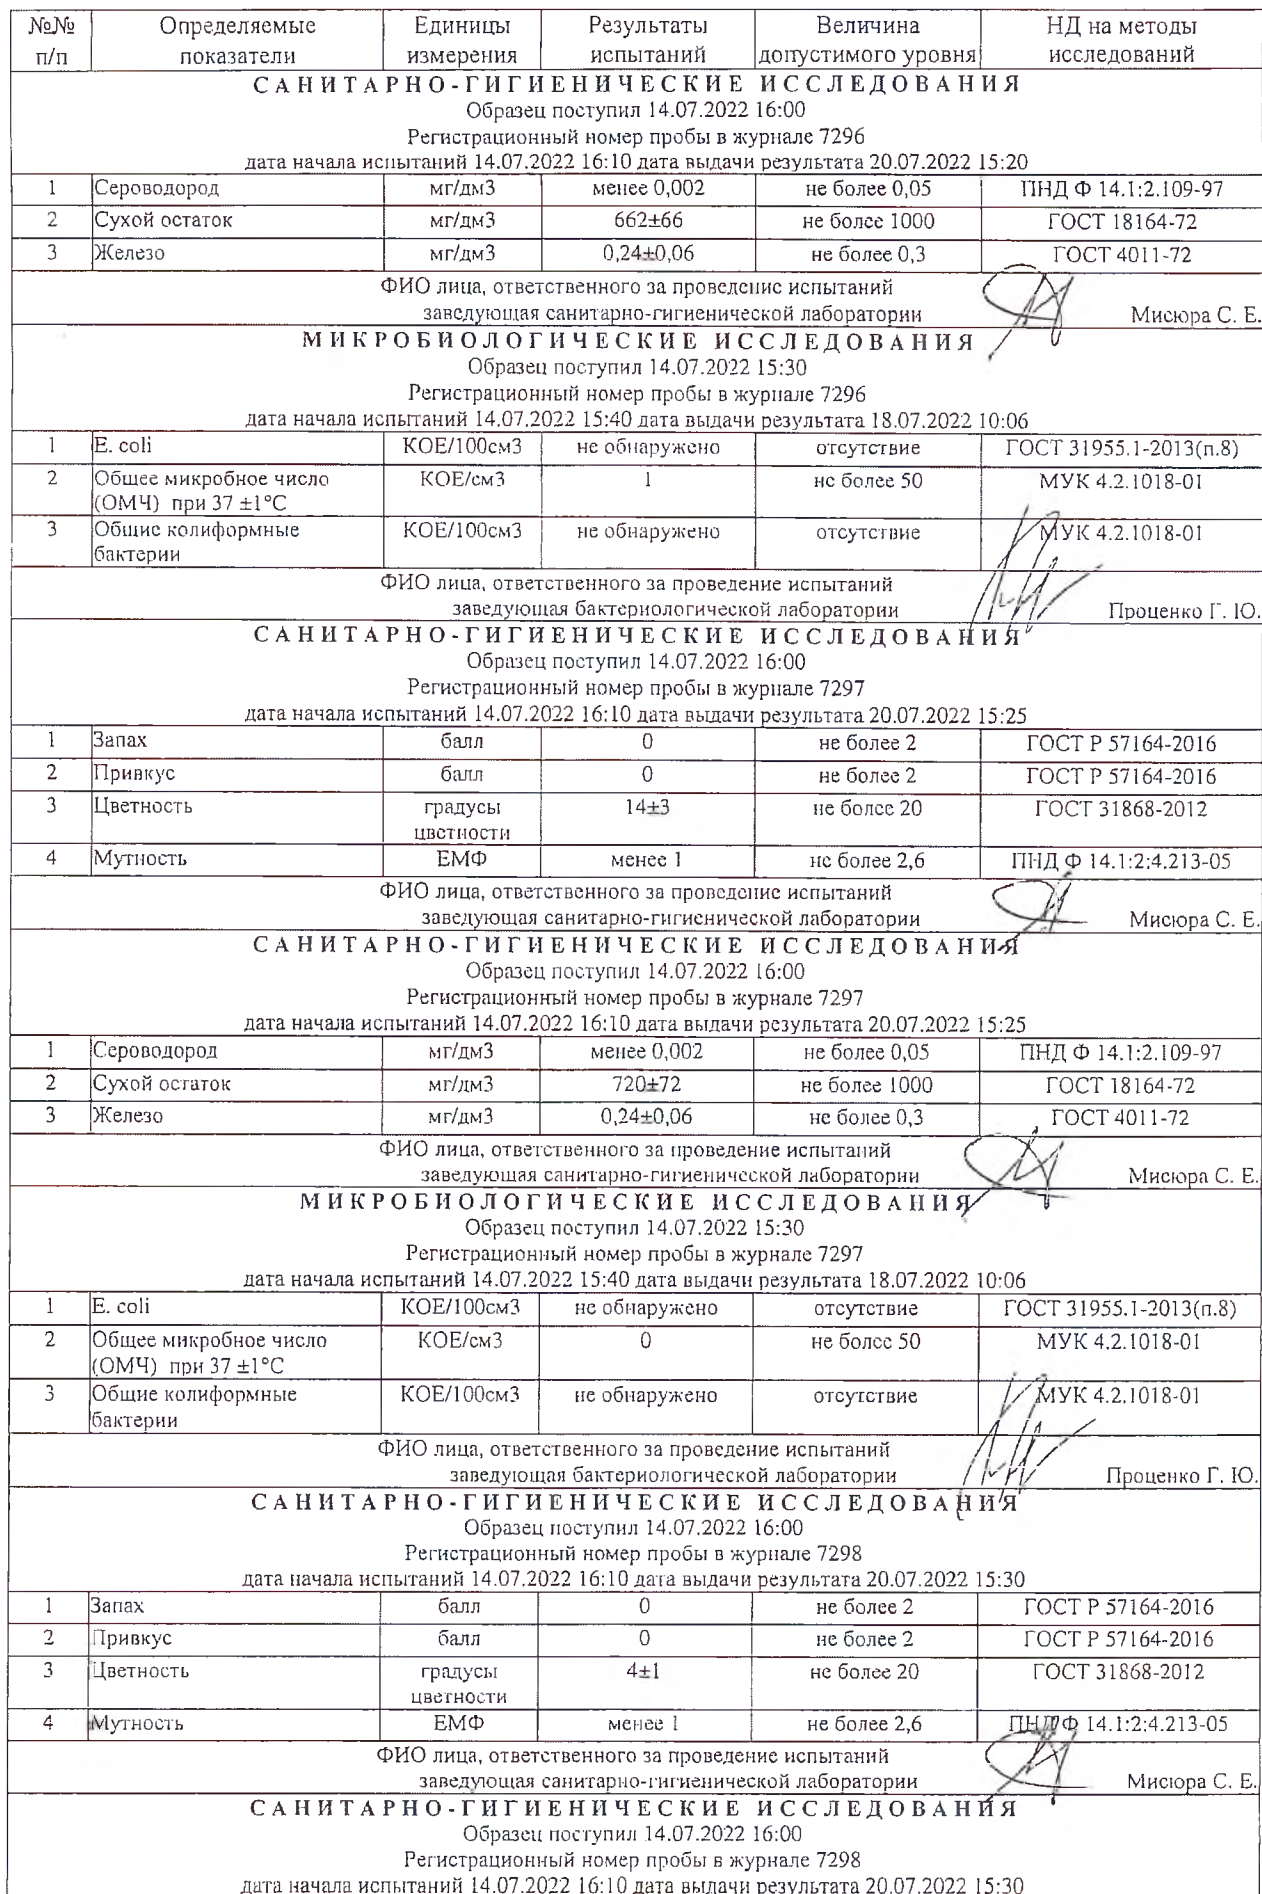 №№ Определяемые Единицы Результаты Величина НД на методы
п/п показатели измерения испытаний допустимого уровня исследований
САНИТАРНО-ГИГИЕНИЧЕСКИЕ ИССЛЕДОВАНИЯ
Образец поступил 14.07.2022 16:00
Регистрационный номер пробы в журнале 7296
дата начала испытаний 14.07.2022 16:10 дата выдачи результата 20.07.2022 15:20
1 Сероводород мг/дм3 менее 0,002 не более 0,05 ПНД Ф 14.1:2.109-97
2 Сухой остаток мг/дм3 662±66 не более 1000 ГОСТ 18164-72
3 Железо мг/дм3 0,24±0,06 не более 0,3 ГОСТ 4011-72
ФИО лица, ответственного за проведение испытаний
заведующая санитарно-гигиенической лаборатории Мисюра С. Е.
МИКРОБИОЛОГИЧЕСКИЕ ИССЛЕДОВАНИЯ
Образец поступил 14.07.2022 15:30
Регистрационный номер пробы в журнале 7296
дата начала испытаний 14.07.2022 15:40 дата выдачи результата 18.07.2022 10:06
1 E. coli КОЕ/100см3 не обнаружено отсутствие ГОСТ 31955.1-2013(п.8)
2 Общее микробное число КОЕ/см3 1 не более 50 МУК 4.2.1018-01
(ОМЧ) при 37 ±1°С
3 Общие колиформные КОЕ/100см3 не обнаружено отсутствие МУК 4.2.1018-01
бактерии
ФИО лица, ответственного за проведение испытаний
заведующая бактериологической лаборатории Проценко Г. Ю.
САНИТАРНО-ГИГИЕНИЧЕСКИЕ ИССЛЕДОВАНИЯ
Образец поступил 14.07.2022 16:00
Регистрационный номер пробы в журнале 7297
дата начала испытаний 14.07.2022 16:10 дата выдачи результата 20.07.2022 15:25
1 Запах балл 0 не более 2 ГОСТ Р 57164-2016
2 Привкус балл 0 не более 2 ГОСТ Р 57164-2016
3 Цветность градусы 14±3 не более 20 ГОСТ 31868-2012
цветности
4 Мутность ЕМФ менее 1 не более 2,6 ПНД Ф 14.1:2:4.213-05
ФИО лица, ответственного за проведение испытаний
заведующая санитарно-гигиенической лаборатории Мисюра С. Е.
САНИТАРНО-ГИГИЕНИЧЕСКИЕ ИССЛЕДОВАНИЯ
Образец поступил 14.07.2022 16:00
Регистрационный номер пробы в журнале 7297
дата начала испытаний 14.07.2022 16:10 дата выдачи результата 20.07.2022 15:25
1 Сероводород мг/дм3 менее 0,002 не более 0,05 ПНД Ф 14.1:2.109-97
2 Сухой остаток мг/дм3 720±72 не более 1000 ГОСТ 18164-72
3 Железо мг/дм3 0,24±0,06 не более 0,3 ГОСТ 4011-72
ФИО лица, ответственного за проведение испытаний
заведующая санитарно-гигиенической лаборатории Мисюра С. Е.
МИКРОБИОЛОГИЧЕСКИЕ ИССЛЕДОВАНИЯ
Образец поступил 14.07.2022 15:30
Регистрационный номер пробы в журнале 7297
дата начала испытаний 14.07.2022 15:40 дата выдачи результата 18.07.2022 10:06
1 E. coli КОЕ/100см3 не обнаружено отсутствие ГОСТ 31955.1-2013(п.8)
2 Общее микробное число КОЕ/см3 0 не более 50 МУК 4.2.1018-01
(ОМЧ) при 37 ±1°С
3 Общие колиформные КОЕ/100см3 не обнаружено отсутствие МУК 4.2.1018-01
бактерии
ФИО лица, ответственного за проведение испытаний
заведующая бактериологической лаборатории Проценко Г. Ю.
САНИТАРНО-ГИГИЕНИЧЕСКИЕ ИССЛЕДОВАНИЯ
Образец поступил 14.07.2022 16:00
Регистрационный номер пробы в журнале 7298
дата начала испытаний 14.07.2022 16:10 дата выдачи результата 20.07.2022 15:30
1 Запах балл 0 не более 2 ГОСТ Р 57164-2016
2 Привкус балл 0 не более 2 ГОСТ Р 57164-2016
3 Цветность градусы 4±1 не более 20 ГОСТ 31868-2012
цветности
4 Мутность ЕМФ менее 1 не более 2,6 ПНД Ф 14.1:2:4.213-05
ФИО лица, ответственного за проведение испытаний
заведующая санитарно-гигиенической лаборатории Мисюра С. Е.
САНИТАРНО-ГИГИЕНИЧЕСКИЕ ИССЛЕДОВАНИЯ
Образец поступил 14.07.2022 16:00
Регистрационный номер пробы в журнале 7298
дата начала испытаний 14.07.2022 16:10 дата выдачи результата 20.07.2022 15:30